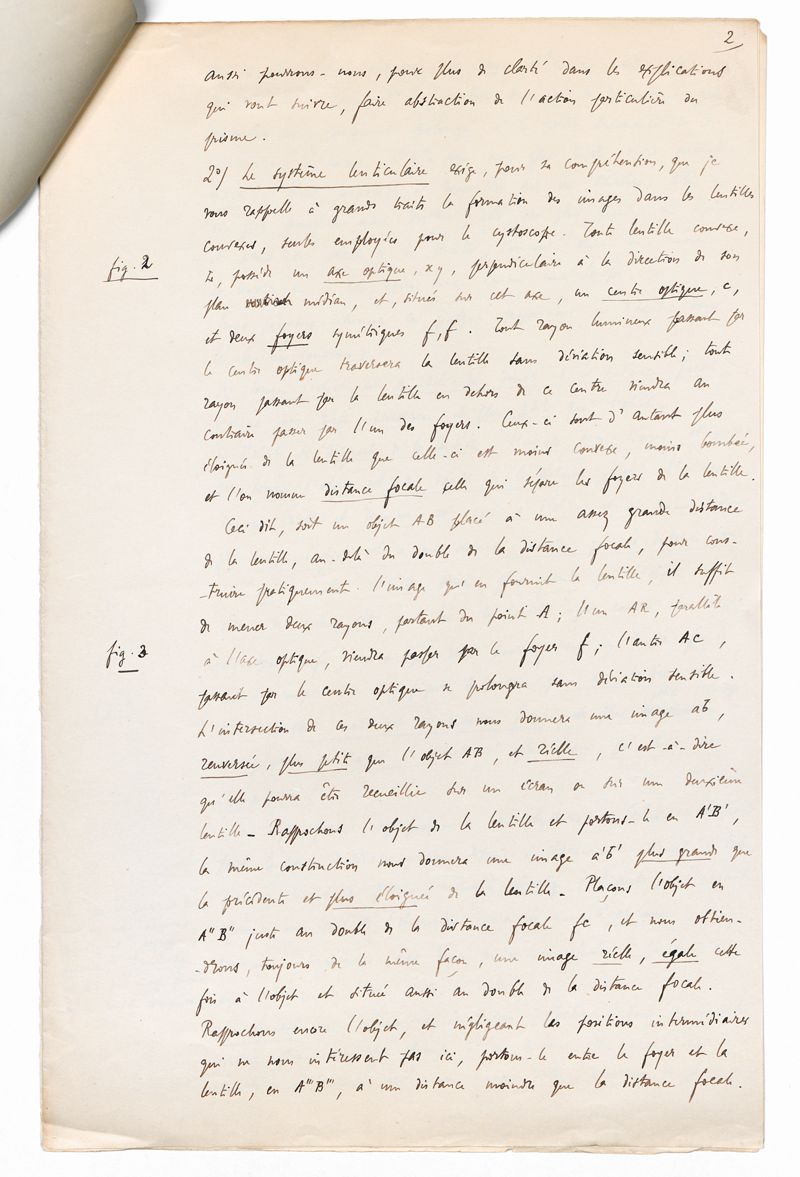 2
aussi pourrons-nous, pour plus de clarté dans les explications
qui vont suivre, faire abstraction de l'action particulière du
prisme.
2°/ Le système lenticulaire exige, pour sa compréhension, que je
vous rappelle à grands traits la formation des images dans les lentilles
convexes, seules employées pour le cystoscope. Toute lentille convexe,
fig. 2
possède un axe optique, xy, perpendiculaire à la direction de son
plan médian, et, situés sur cet axe, un centre optique, c,
et deux foyers symétriques f, f. Tout rayon lumineux passant par
le centre optique traversera la lentille sans déviation sensible; tout
rayon passant par la lentille en dehors de ce centre viendra au
contraire passer par l'un des foyers. Ceux-ci sont d'autant plus
éloignés de la lentille que celle-ci est moins convexe, moins bombée,
et l'on nomme distance focale celle qui sépare les foyers de la lentille.
Ceci dit, soit un objet AB placé à une assez grande distance
de la lentille, au-delà du double de la distance focale, pour cons-
-truire pratiquement l'image qu'en fournit la lentille, il suffit
de mener deux rayons, partant du point A; l'un AR, parallèle
fig. 3
à l'axe optique, viendra passer par le foyer f; l'autre AC,
passant par le centre optique se prolongera sans déviation sensible.
L'intersection de ces deux rayons nous donnera une image ab,
renversée, plus petite que l'objet AB, et réelle, c'est-à-dire
qu'elle pourra être recueillie sur un écran ou sur une deuxième
lentille - Rapprochons l'objet de la lentille et portons-le en A'B',
la même construction nous donnera une image a'b' plus grande que
la précédente et plus éloignée de la lentille - Plaçons l'objet en
A"B" juste au double de la distance focale fc, et nous obtien-
-drons, toujours de la même façon, une image réelle, égale cette
fois à l'objet et située aussi au double de la distance focale.
Rapprochons encore l'objet, et négligeant les positions intermédiaires
qui ne nous intéressent pas ici, portons-le entre le foyer et la
lentille, en A'''B''', à une distance moindre que la distance focale.